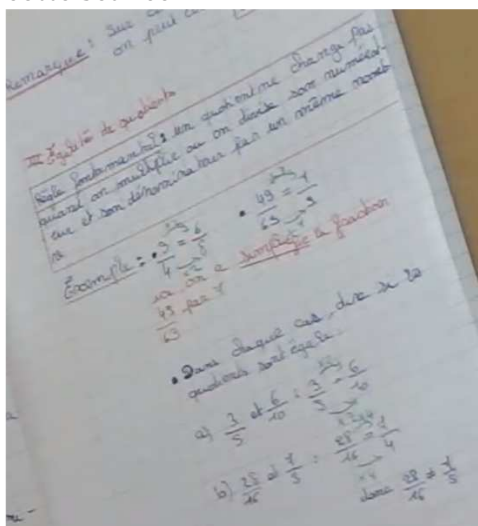 Remarque : Sur
on peut
III Égalité de quotients
Règle fondamentale : un quotient ne change pas
quand on multiplie ou on divise son numérat-
eur et son dénominateur par un même nomb-
re.
Exemple : • 3/4 = 6/8 • 49/63 = 7/9
ici on a simplifié la fraction
49/63 par 7
• Dans chaque cas, dire si les
quotients sont égaux.
a) 3/5 et 6/10 : 3/5 = 6/10
b) 28/16 et 7/5 : 28/16 = 7/4
donc 28/16 ≠ 7/5